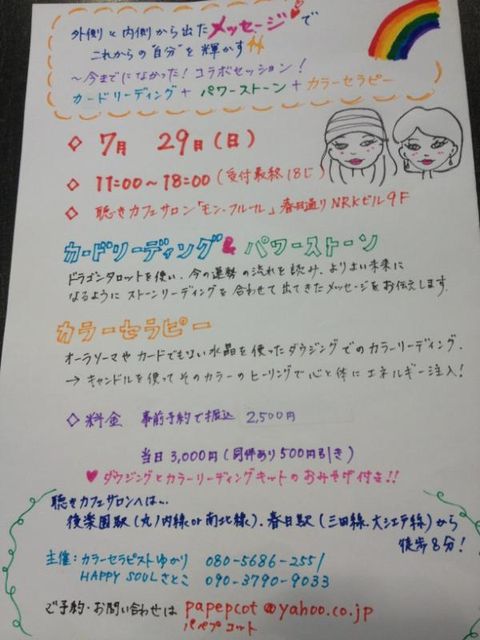 外側と内側から出たメッセージで
これからの"自分"を輝かす
〜今までになかった!コラボセッション!
カードリーディング+パワーストーン+カラーセラピー
◇ 7月 29日(日)
◇ 11:00〜18:00(受付最終18じ)
◇ 聴きカフェサロン「モン・フルール」春日通りNRKビル9F
カードリーディング&パワーストーン
ドラゴンタロットを使い、今の運勢の流れを読み、よりよい未来に
なるようにストーンリーディングを合わせて出てきたメッセージをお伝えします。
カラーセラピー
オーラソーマやカードでもない水晶を使ったダウジングでのカラーリーディング。
→キャンドルを使ってそのカラーのヒーリングで心と体にエネルギー注入!
◇料金 事前予約で振込 2,500円
当日 3,000円(同伴あり500円引き)
♥ダウジングとカラーリーディングキットのおみやげ付き!!
聴きカフェサロンへは…
後楽園駅(丸ノ内線or南北線)、春日駅(三田線、大江戸線)から
徒歩8分!
主催:カラーセラピストゆかり 080-5686-2551
HAPPY SOULさとこ 090-3790-9033
ご予約・お問い合わせは papepcot@yahoo.co.jp
パペプコット